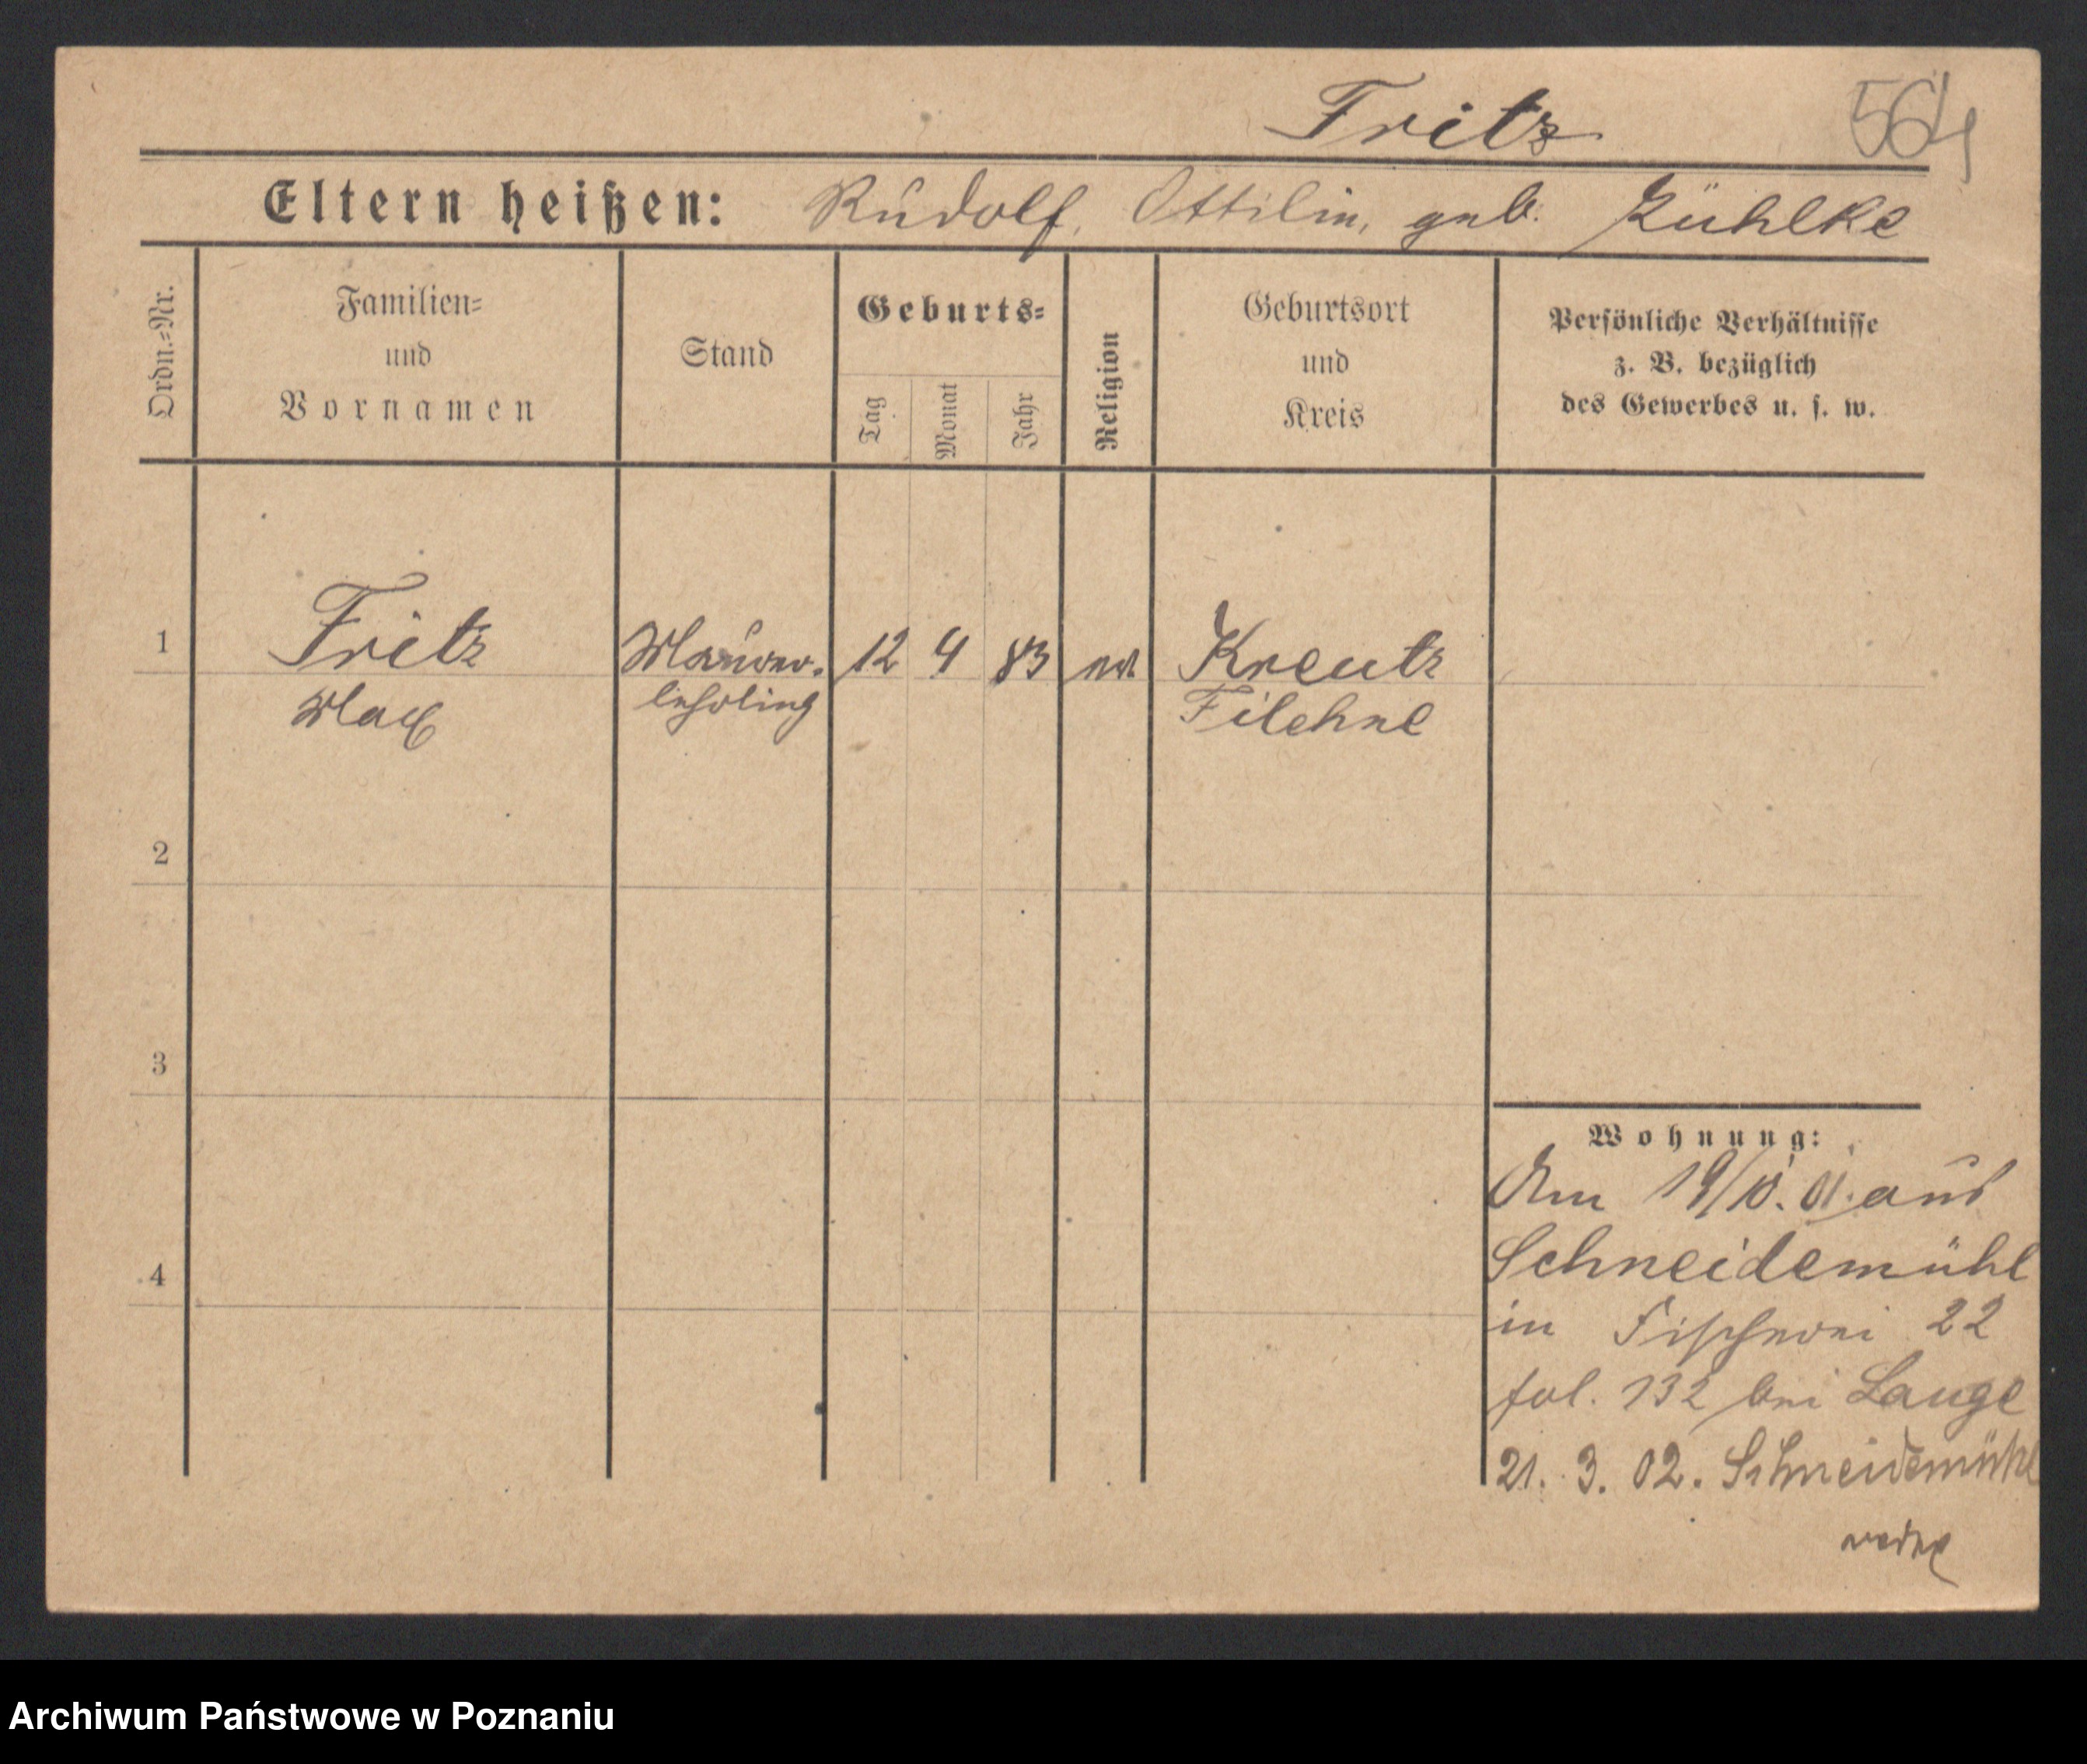 Fritz 564
Eltern heißen: Rudolf, Ottilie, geb. Kühlke
Ordn.-Nr.
Familien-
und
Vornamen
Stand
Geburts-
Tag
Monat
Jahr
Religion
Geburtsort
und
Kreis
Persönliche Verhältnisse
z. B. bezüglich
des Gewerbes u. s. w.
1 Fritz Maurer- 12 4 83 ev. Kreutz
Max lehrling Filehne
2
3
4
Wohnung:
Am 19/10. 01. aus
Schneidemühl
in Fischerei 22
fol. 132 bei Lange
21. 3. 02. Schneidemühl
Archiwum Państwowe w Poznaniu